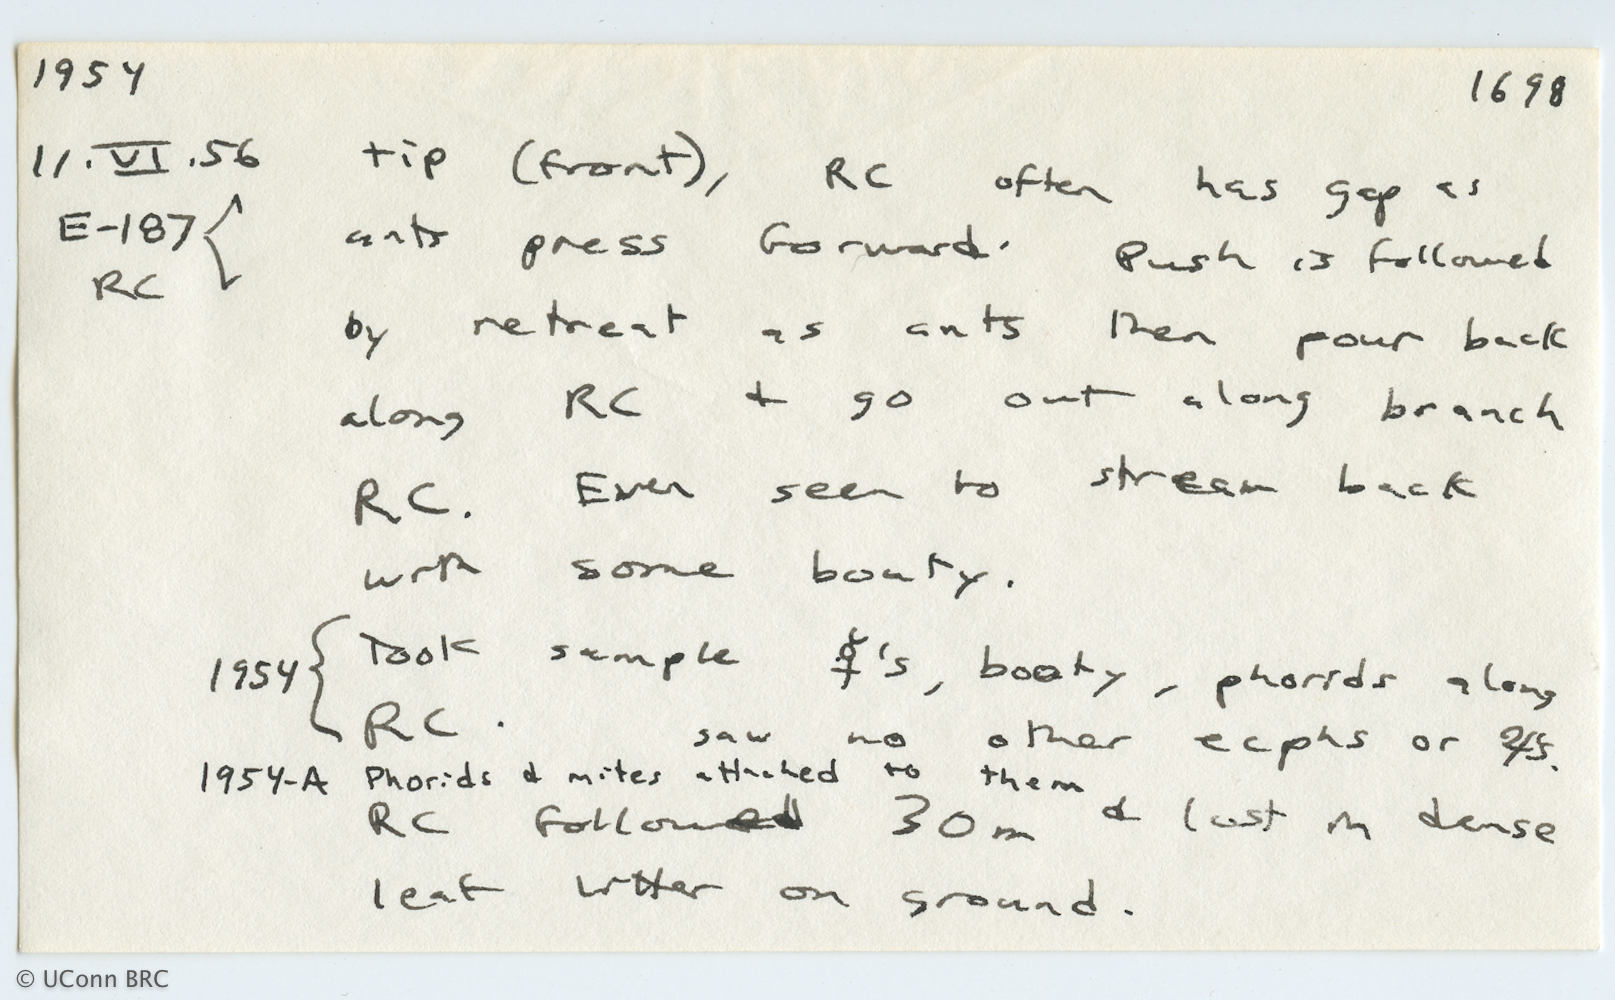 1954 1698
11.VI.56 tip (front), RC often has gap as
E-187 ants press forward. Push is followed
RC
by retreat as ants then pour back
along RC & go out along branch
RC. Even seen to stream back
with some booty.
1954 Took sample ☿'s, booty, phorids along
RC. saw no other ecphs or
1954-A Phorids & mites attached to them
RC followed 30m & lost in dense
leaf litter on ground.
© UConn BRC